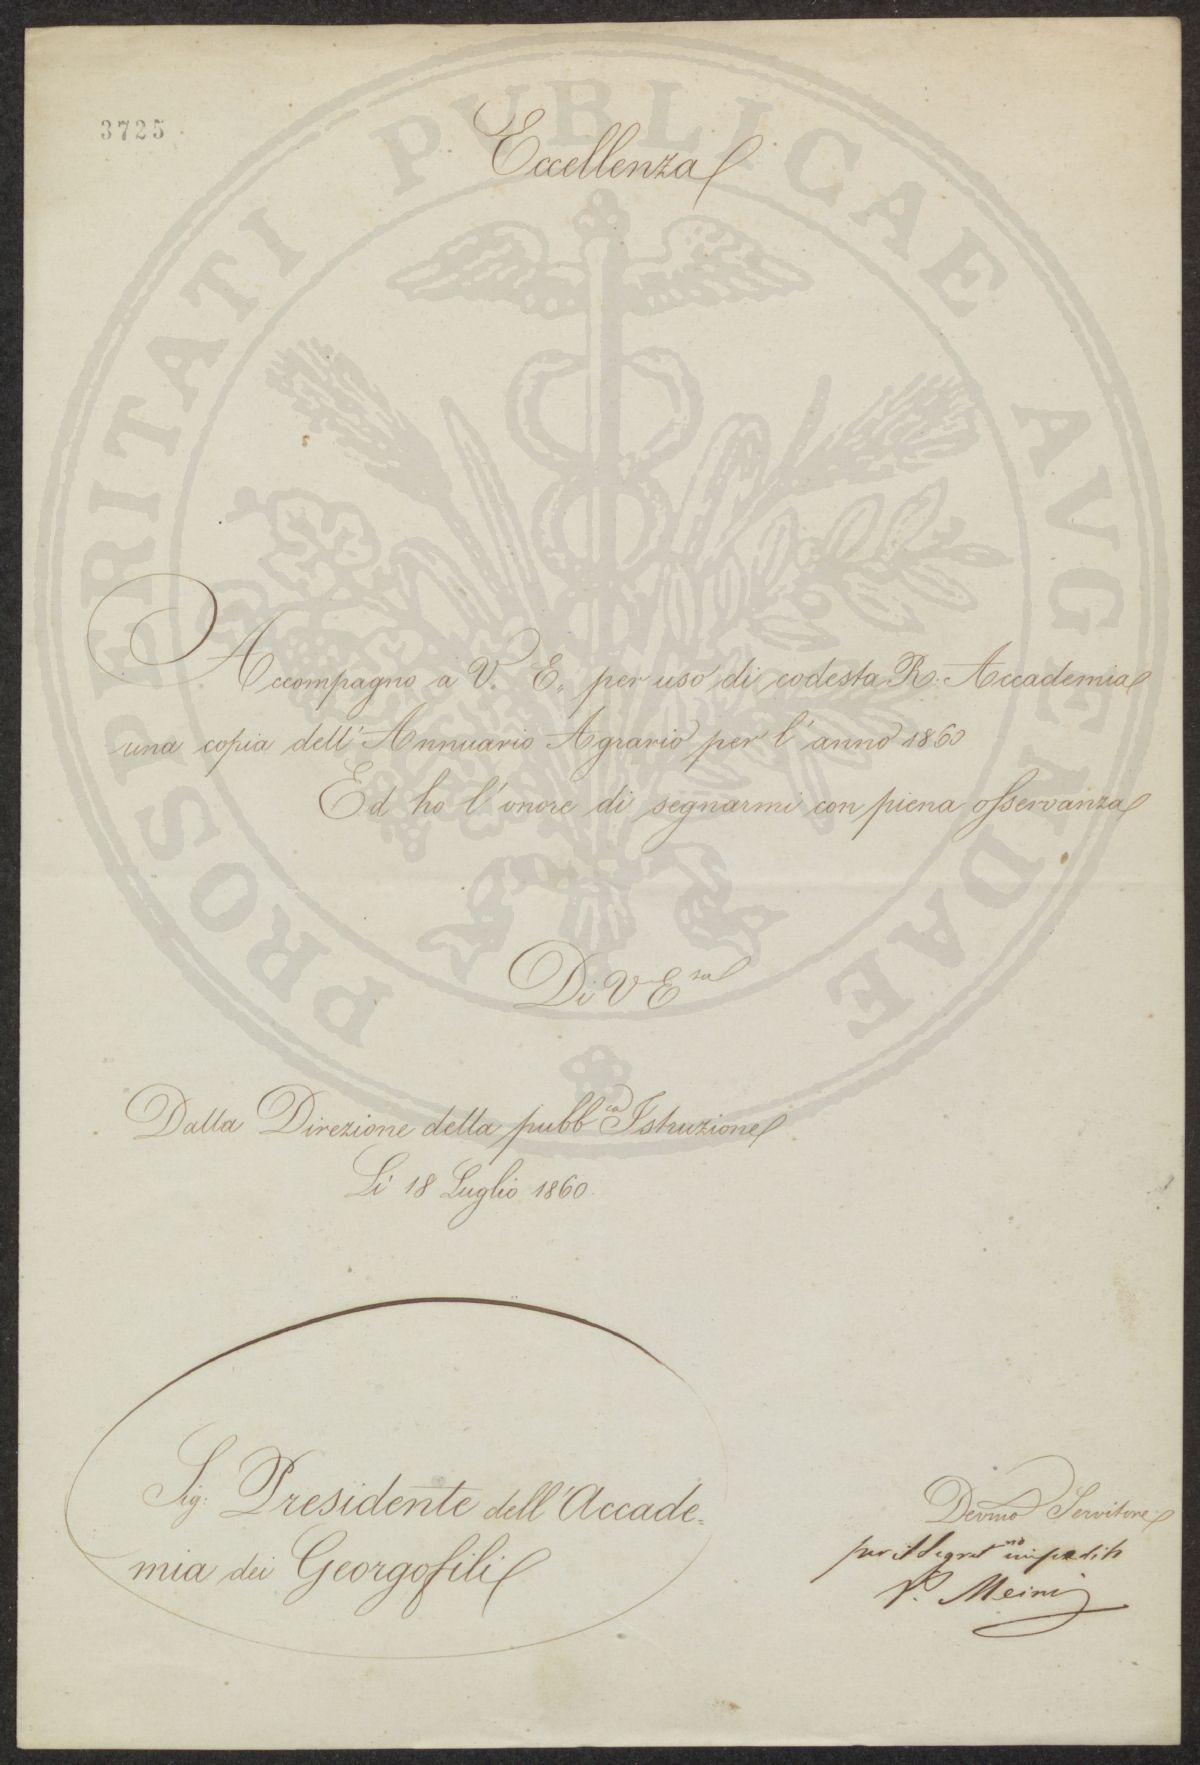 3725
Eccellenza
Accompagno a V. E. per uso di codesta R. Accademia
una copia dell'Annuario Agrario per l'anno 1860
Ed ho l'onore di segnarmi con piena osservanza
Di V E.za
Dalla Direzione della pubb.ca Istruzione
Li 18 Luglio 1860.
Sig: Presidente dell'Accade=
mia dei Georgofili
Devmo Servitore
per il Segret.no impedito
V. Meini
PROSPERITATI PUBLICAE AVGENDAE